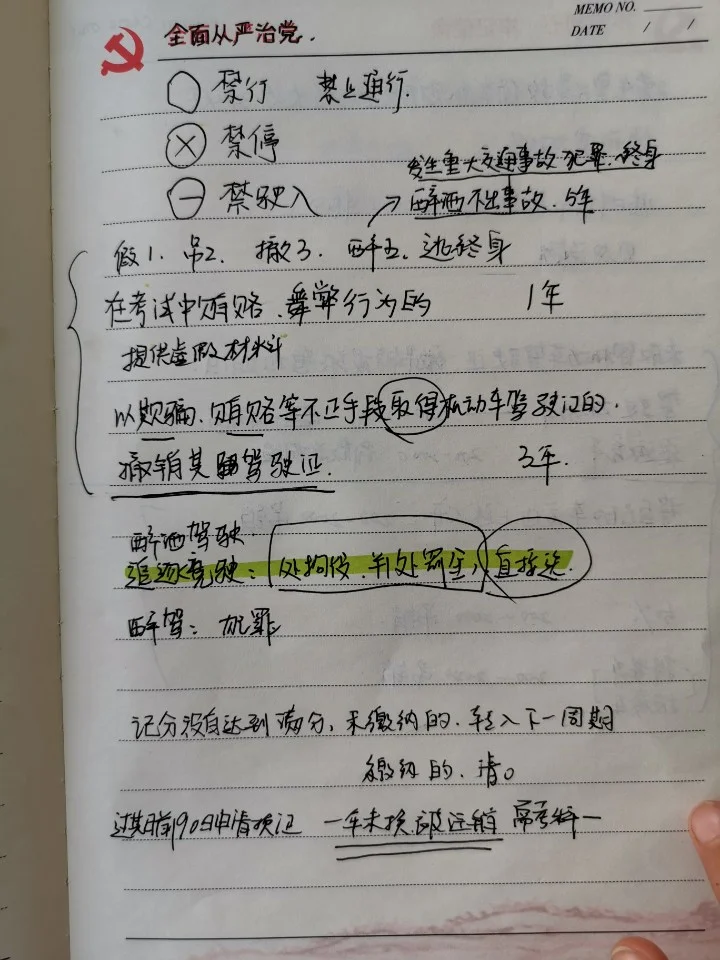 MEMO NO.
DATE / /
全面从严治党.
禁行 禁止通行.
禁停
发生重大交通事故犯罪.终身
禁驶入 → 醉酒不出事故.5年
假1.吊2.撤3.醉五.逃终身
在考试中贿赂.舞弊行为的 1年
提供虚假材料
以欺骗.贿赂等不正手段取得机动车驾驶证的.
撤销其驾驶证. 3年.
醉酒驾驶.
追逐竞驶:处拘役.并处罚金,直接选.
醉驾:犯罪
记分没有达到满分,未缴纳的.转入下一周期
缴纳的.清0
过期前90日申请换证 一年未换.被注销 需考科一